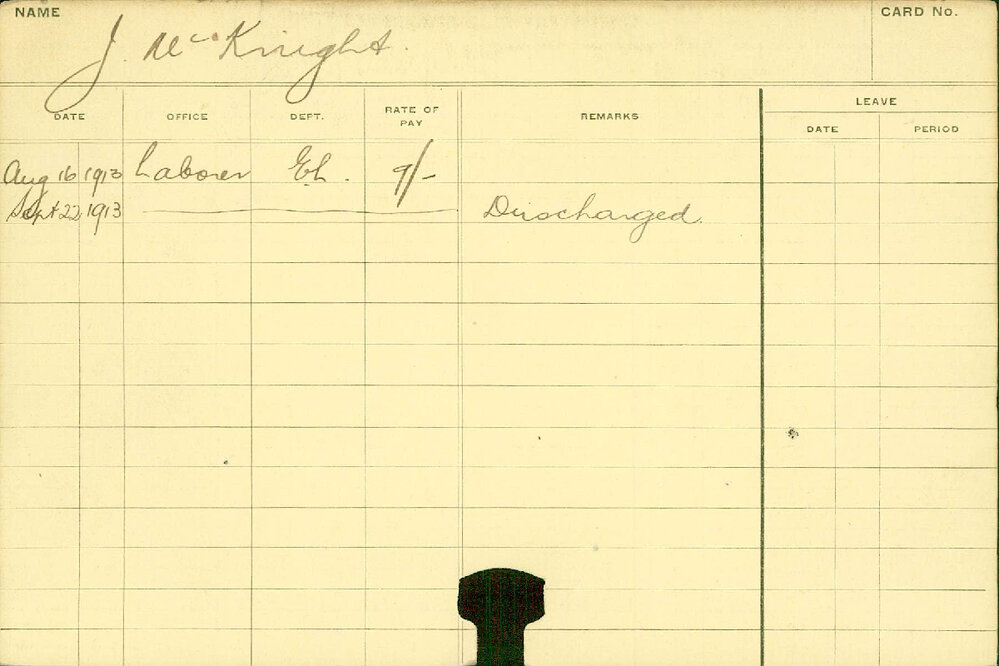 NAME
J. McKnight.
CARD No.
DATE OFFICE DEPT. RATE OF PAY REMARKS LEAVE
DATE PERIOD
Aug 16 1913 Laborer 9/-
Sept 22, 1913 Discharged.